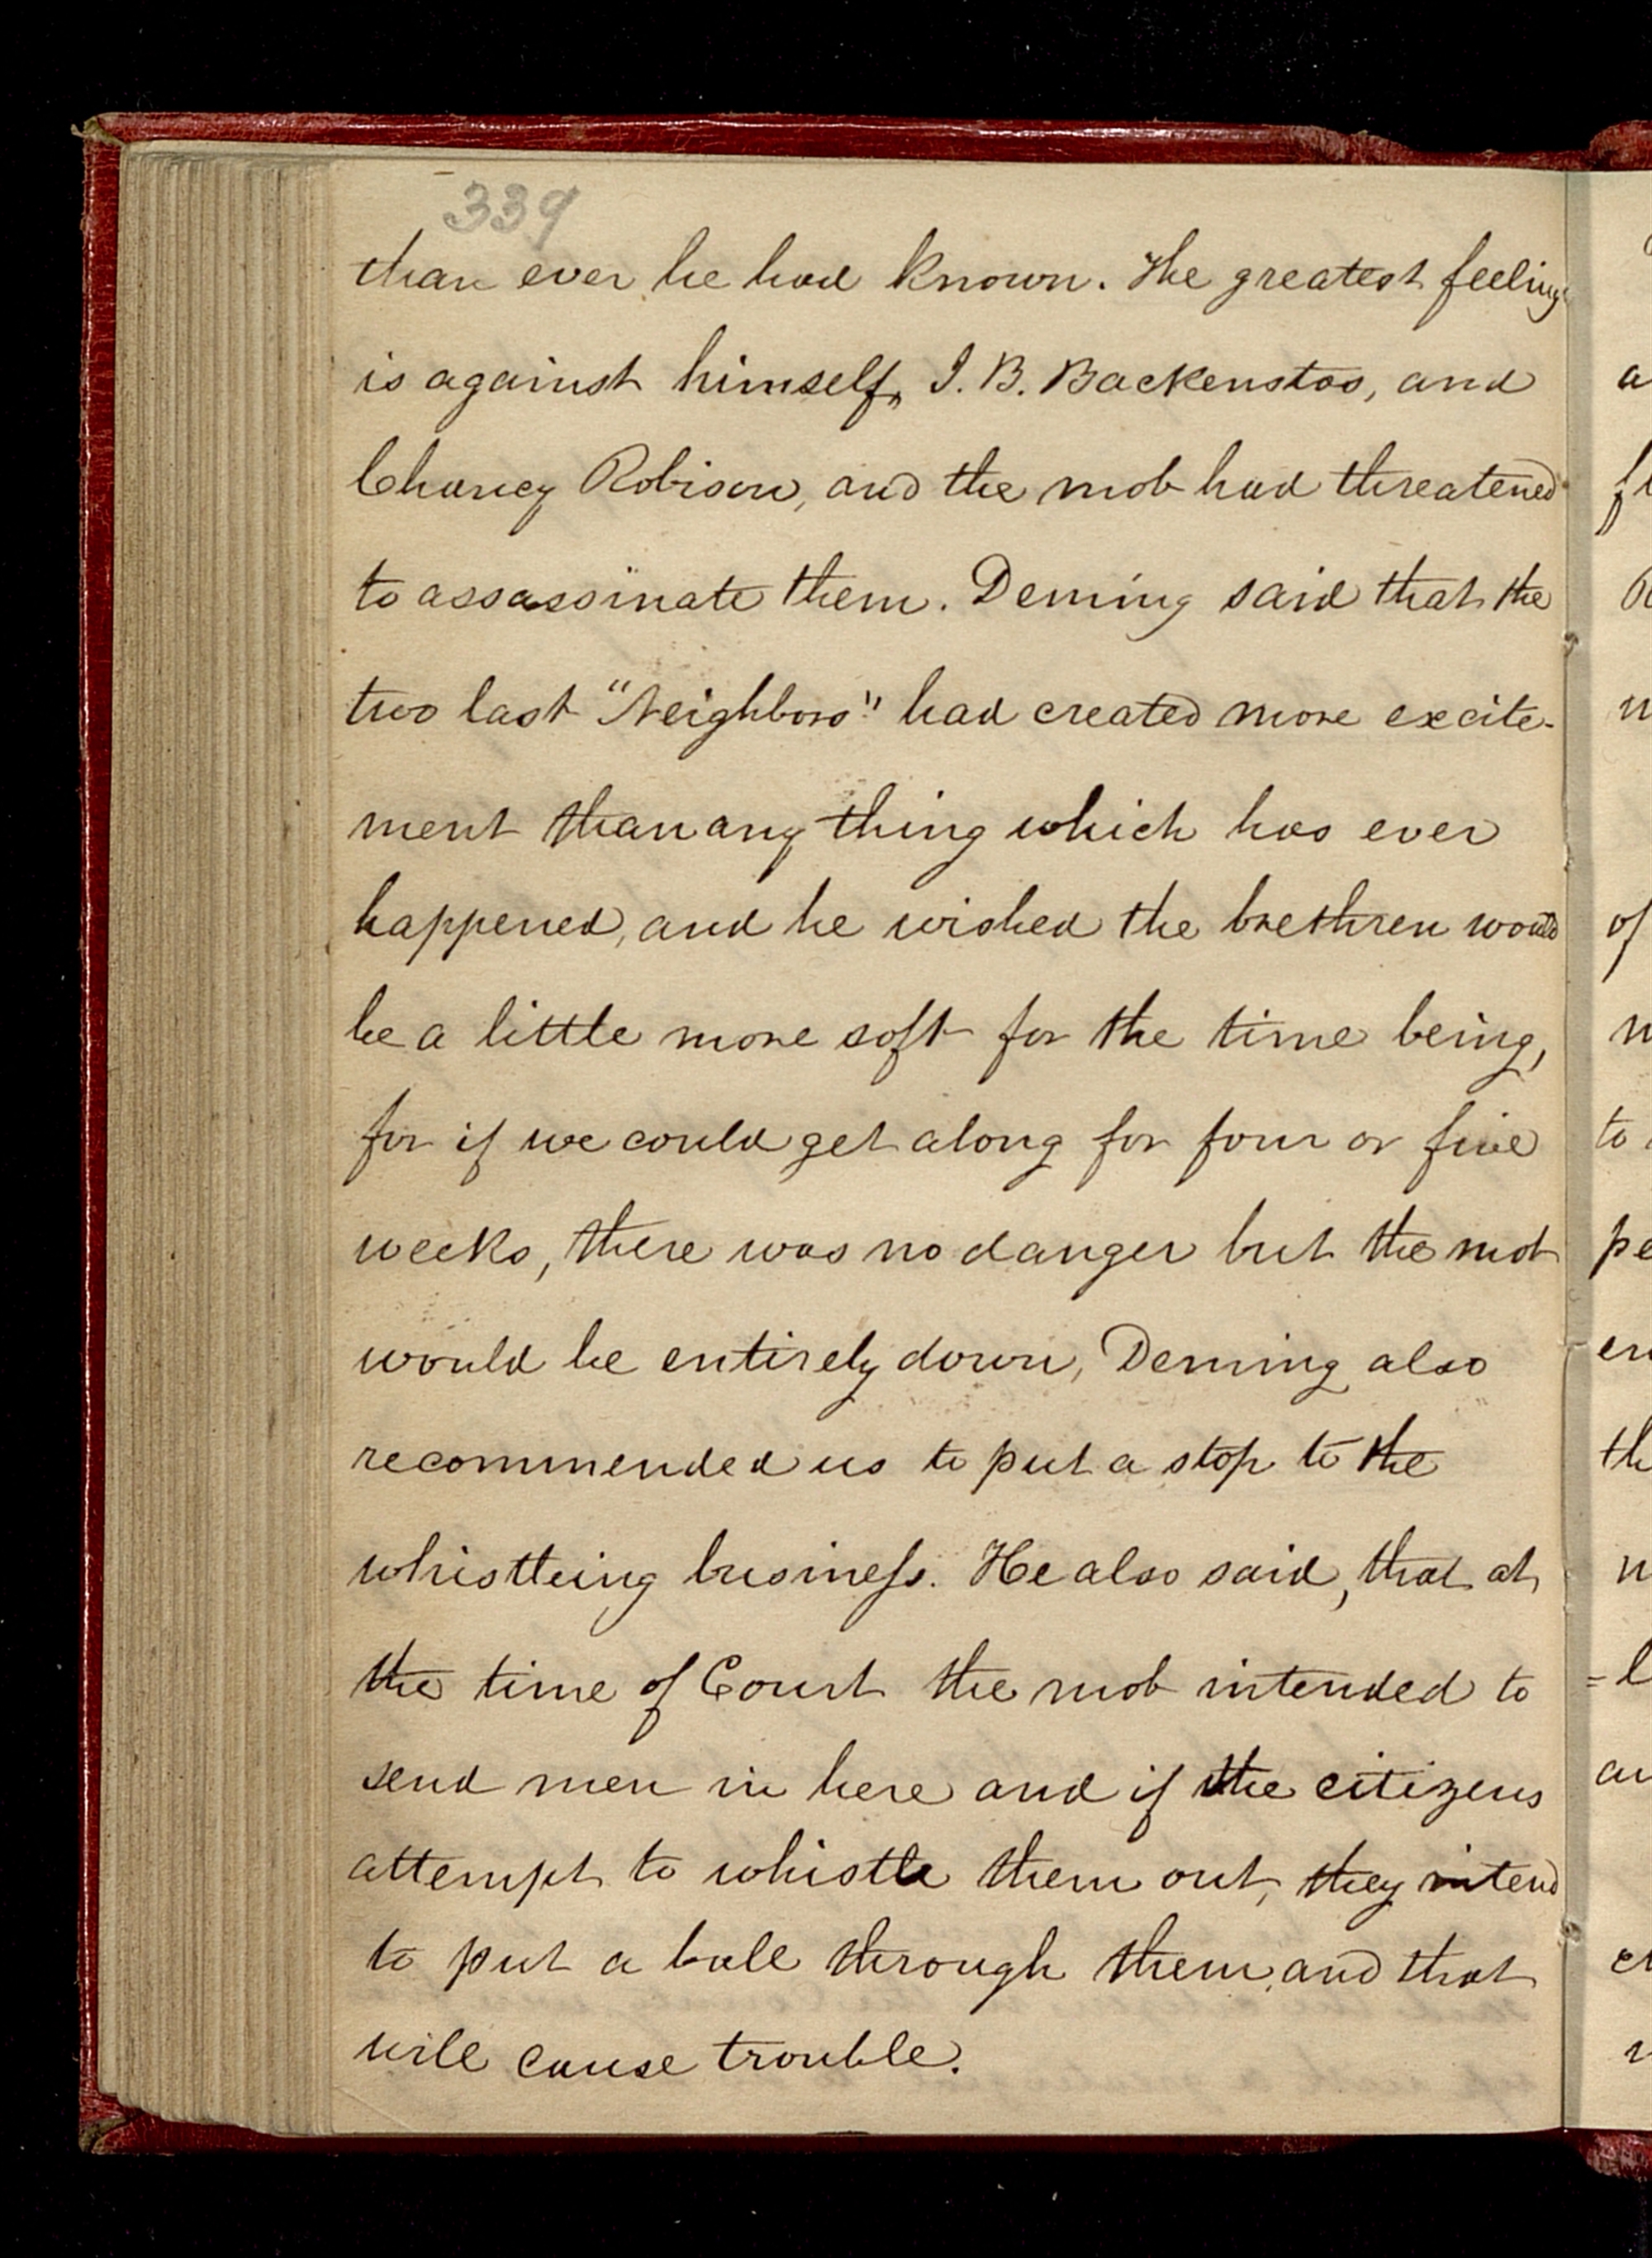 339
than ever he had known. The greatest feelings
is against himself, J. B. Backenstos, and
Chancy Robison, and the mob had threatened
to assassinate them. Deming said that the
two last "Neighbors" had created more excite-
ment than any thing which has ever
happened, and he wished the brethren would
be a little more soft for the time being,
for if we could get along for four or five
weeks, there was no danger but the mob
would be entirely down, Deming also
recommended us to put a stop to the
whistleing business. He also said, that at
the time of Court the mob intended to
send men in here and if the citizens
attempt to whistle them out, they intend
to put a ball through them, and that
will cause trouble.